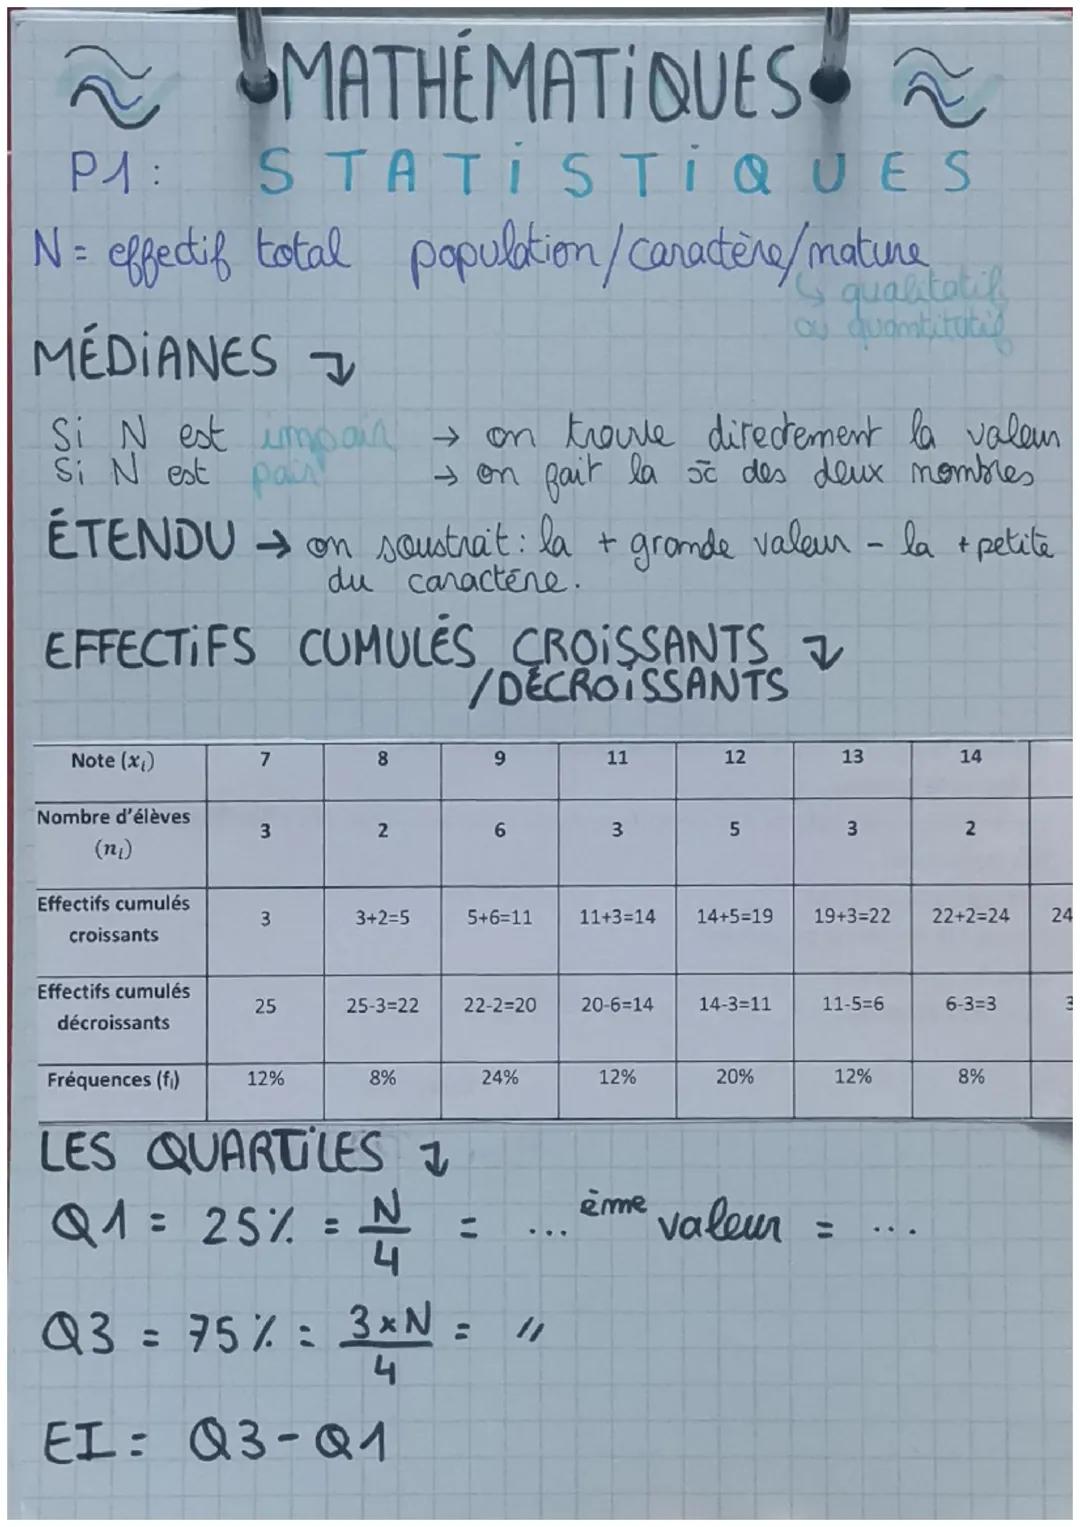 MATHÉMATIQUES
P1: STATISTIQUES
N = effectif total population/caractère/nature
↳ qualitatif
ou quantitatif
MÉDIANES ↴
Si N est impair → on trouve directement la valeur
Si N est pair → on fait la x̄ des deux nombres
ÉTENDU → on soustrait: la + grande valeur - la + petite
du caractère.
EFFECTIFS CUMULÉS CROISSANTS ↴
/DÉCROISSANTS
Note (xᵢ) 7 8 9 11 12 13 14
Nombre d'élèves (nᵢ) 3 2 6 3 5 3 2
Effectifs cumulés croissants 3 3+2=5 5+6=11 11+3=14 14+5=19 19+3=22 22+2=24 24
Effectifs cumulés décroissants 25 25-3=22 22-2=20 20-6=14 14-3=11 11-5=6 6-3=3 3
Fréquences (fᵢ) 12% 8% 24% 12% 20% 12% 8%
LES QUARTILES ↴
Q1 = 25% = N/4 = ... ème valeur = ...
Q3 = 75% = 3×N/4 = //
EI = Q3-Q1